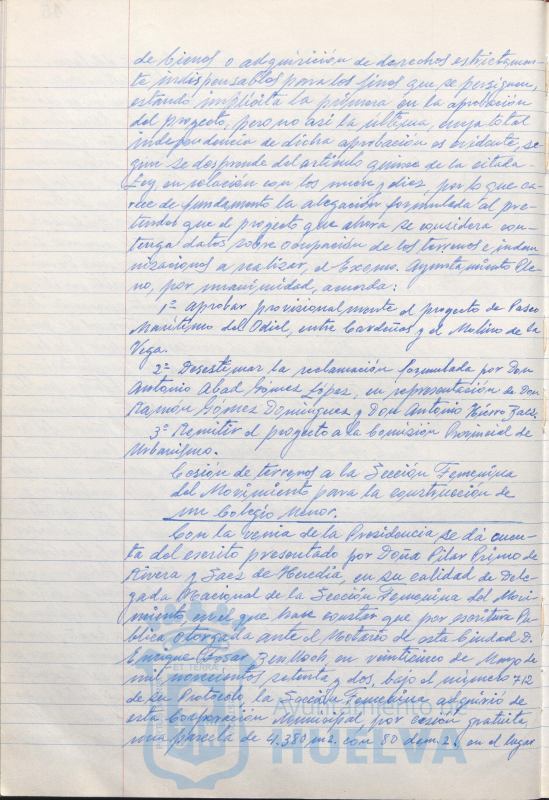 de bienes o adquisición de derechos estrictamen-
te indispensables para los fines que se persiguen,
estando implícita la primera en la aprobación
del proyecto, pero no así la última, cuya total
independencia de dicha aprobación es evidente, se-
gún se desprende del artículo quince de la citada
Ley, en relación con los nueve y diez, por lo que ca-
rece de fundamento la alegación formulada al pre-
tender que el proyecto que ahora se considera con-
tenga datos sobre ocupación de los terrenos e indem-
nizaciones a realizar, el Excmo. Ayuntamiento Ple-
no, por unanimidad, acuerda:
1º Aprobar provisionalmente el proyecto de Paseo
Marítimo del Odiel, entre Cardeñas y el Molino de la
Vega.
2º Desestimar la reclamación formulada por Don
Antonio Abad Gómez López, en representación de Don
Ramón Gómez Domínguez y Don Antonio Hierro
3º Remitir el proyecto a la Comisión Provincial de
Urbanismo.
Cesión de terrenos a la Sección Femenina
del Movimiento para la construcción de
un Colegio Menor.
Con la venia de la Presidencia se da cuen-
ta del escrito presentado por Doña Pilar Primo de
Rivera y Saez de Heredia, en su calidad de Dele-
gada Nacional de la Sección Femenina del Movi-
miento en el que hace constar que por escritura Pú-
blica otorgada ante el Notario de esta Ciudad D.
Enrique en veinticinco de Marzo de
mil novecientos setenta y dos, bajo el número 712
de su Protocolo, la Sección Femenina adquirió de
esta Corporación Municipal por cesión gratuita,
una parcela de 4.380 m2. con 80 dcm.2. en el lugar
AYUNTAMIENTO DE
HUELVA